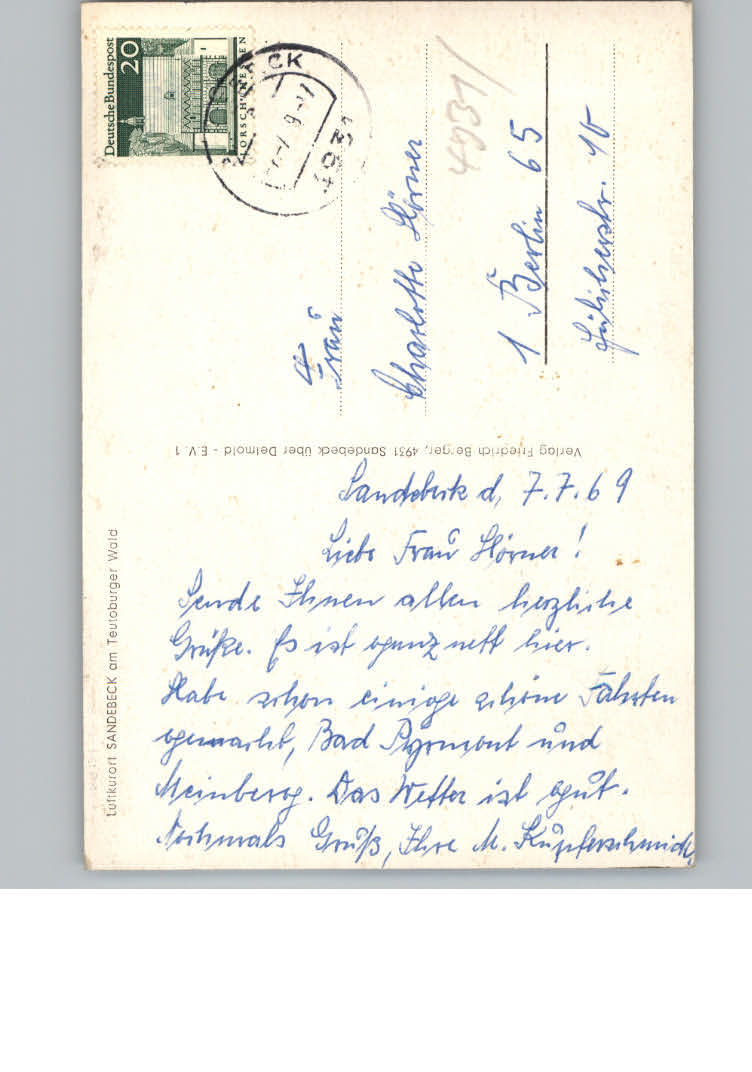 Deutsche Bundespost
20
LORSCH/HESSEN
4931
Frau
Charlotte Hörner
1 Berlin 65
Jülicherstr. 10
Verlag Friedrich Berger, 4931 Sandebeck über Detmold - E.V. 1
Luftkurort SANDEBECK am Teutoburger Wald
Sandebeck d, 7.7.69
Liebe Frau Hörner!
Sende Ihnen allen herzliche
Grüße. Es ist ganz nett hier.
Habe schon einige schöne Fahrten
gemacht, Bad Pyrmont und
Meinberg. Das Wetter ist gut.
Nochmals Gruß, Ihre M. Kupferschmidt